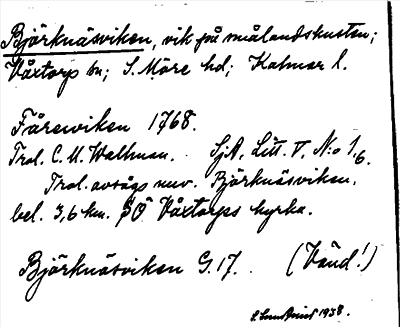 Björknäsviken, vik på smålandskusten;
Våxtorp by; S. Möre hd; Kalmar l.
Fårewiken 1768.
Trol. C. U. Wallman. SjA, Litt. V, N:o 1/6.
Trol. avsågs nuv. Björknäsviken,
bel. 3,6 km. SÖ Våxtorps kyrka.
Björknäsviken G. 17. (Vänd!)
1938.